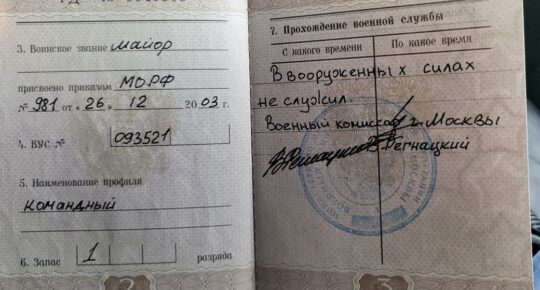 3. Воинское звание майор
присвоено приказом МО РФ
№ 981 от « 26 » 12 2003 г.
4. ВУС № 093521
5. Наименование профиля
командный
6. Запас 1 разряда
2
7. Прохождение военной службы
С какого времени По какое время
В вооруженных силах
не служил.
Военный комиссар г. Москвы
В. Регнацкий
3